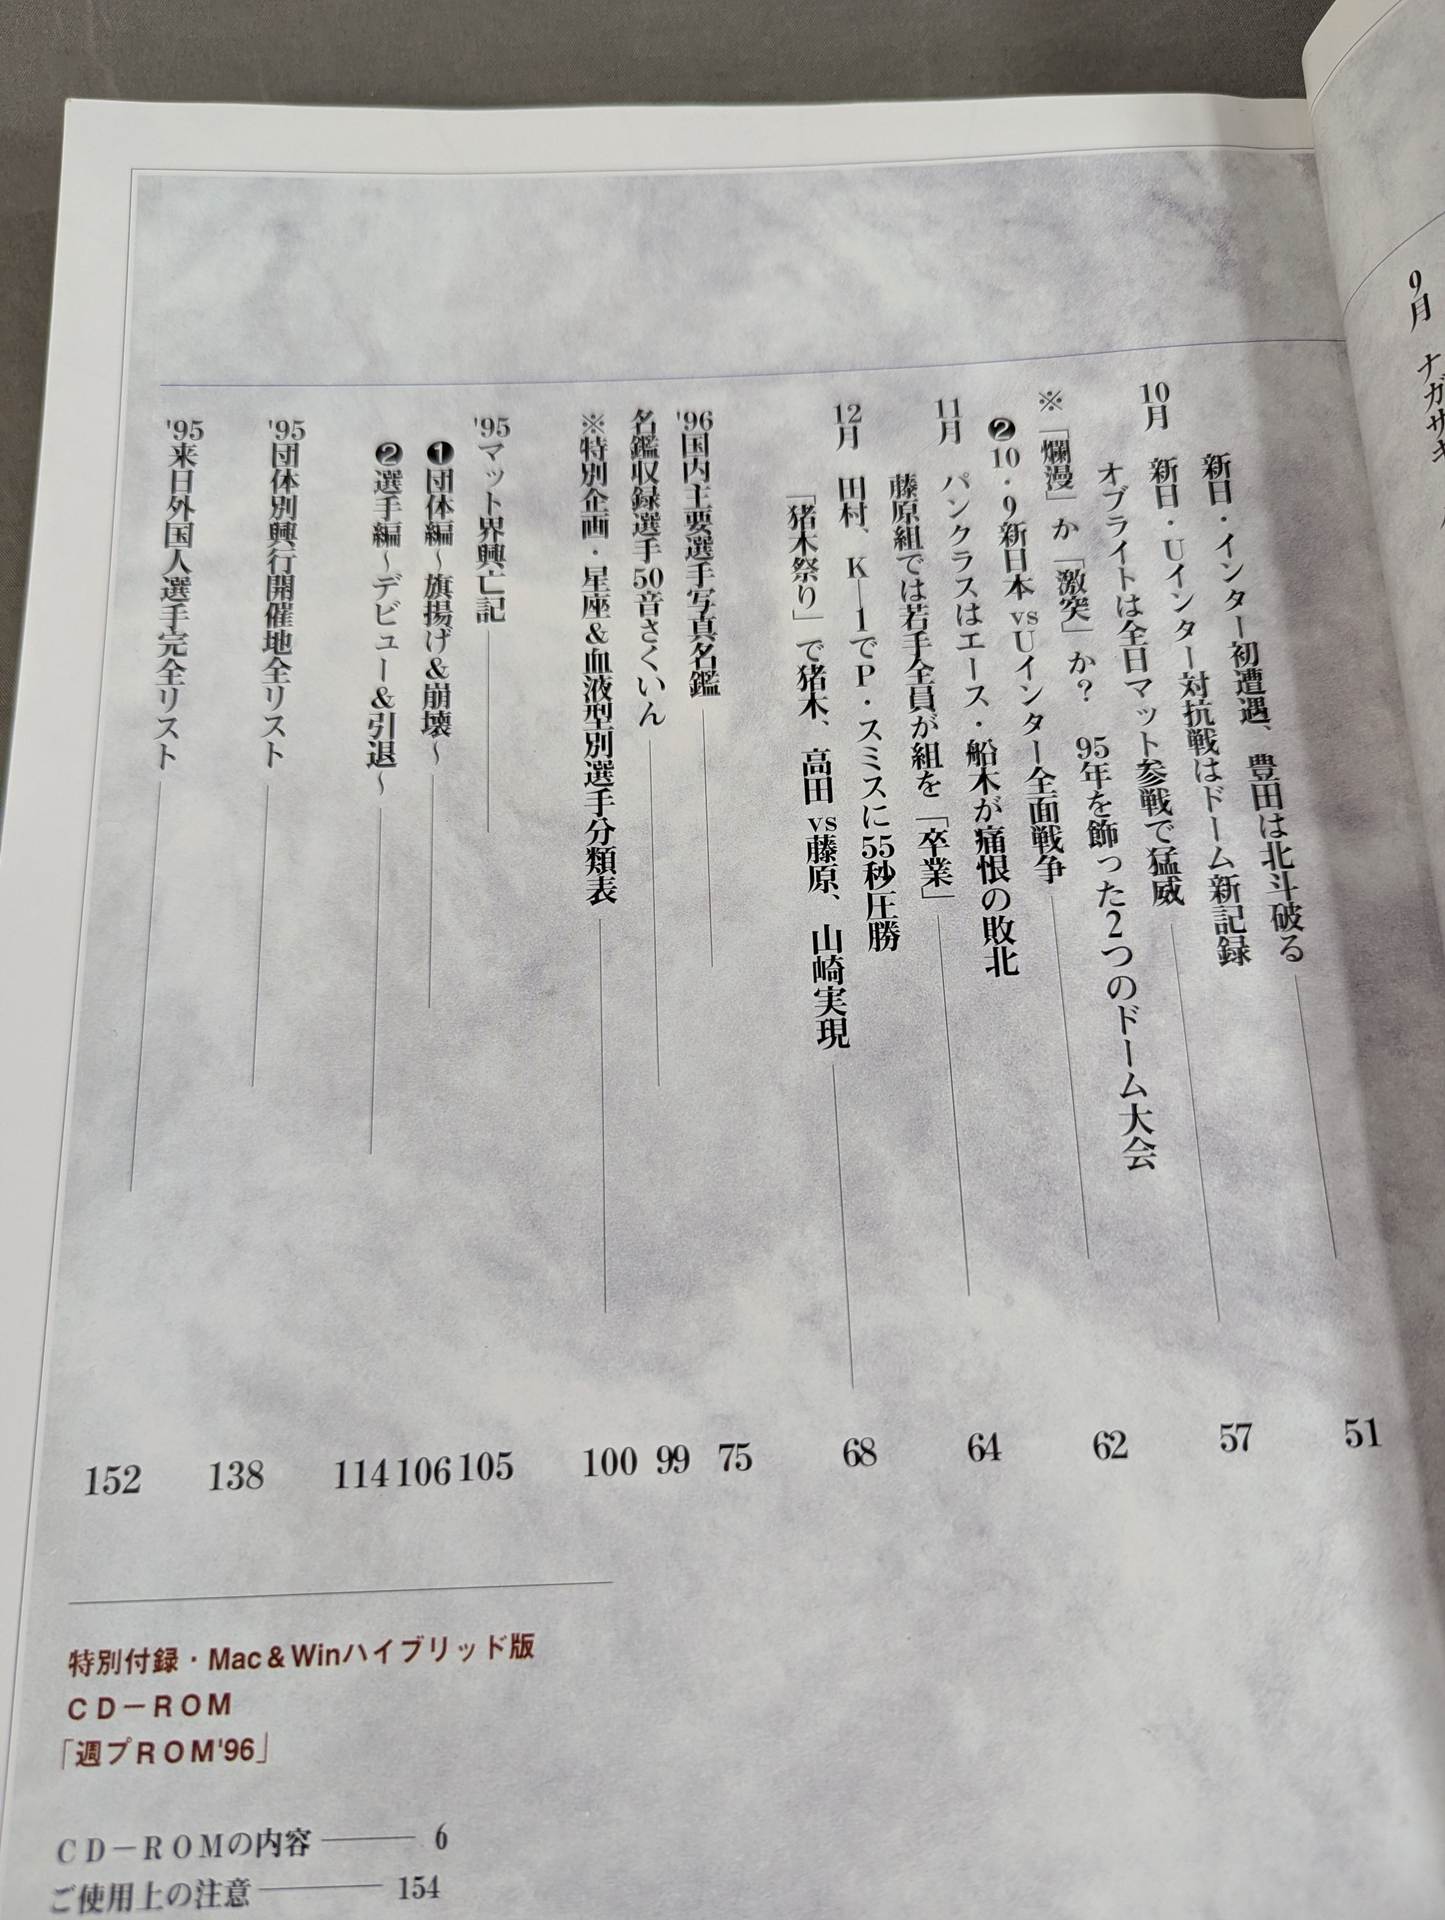 9月
ナガサキ
新日・インター初遭遇、豊田は北斗破る
51
10月　新日・Uインター対抗戦はドーム新記録
オブライトは全日マット参戦で猛威
57
※「爛漫」か「激突」か？　95年を飾った2つのドーム大会
❷10・9新日本vsUインター全面戦争
62
11月　パンクラスはエース・船木が痛恨の敗北
藤原組では若手全員が組を「卒業」
64
12月　田村、K―1でP・スミスに55秒圧勝
「猪木祭り」で猪木、高田vs藤原、山崎実現
68
'96国内主要選手写真名鑑
75
名鑑収録選手50音さくいん
99
※特別企画・星座&血液型別選手分類表
100
'95マット界興亡記
105
❶団体編～旗揚げ&崩壊～
106
❷選手編～デビュー&引退～
114
'95団体別興行開催地全リスト
138
'95来日外国人選手完全リスト
152
特別付録・Mac&Winハイブリッド版
CD－ROM
「週プROM'96」
CD－ROMの内容 6
ご使用上の注意 154